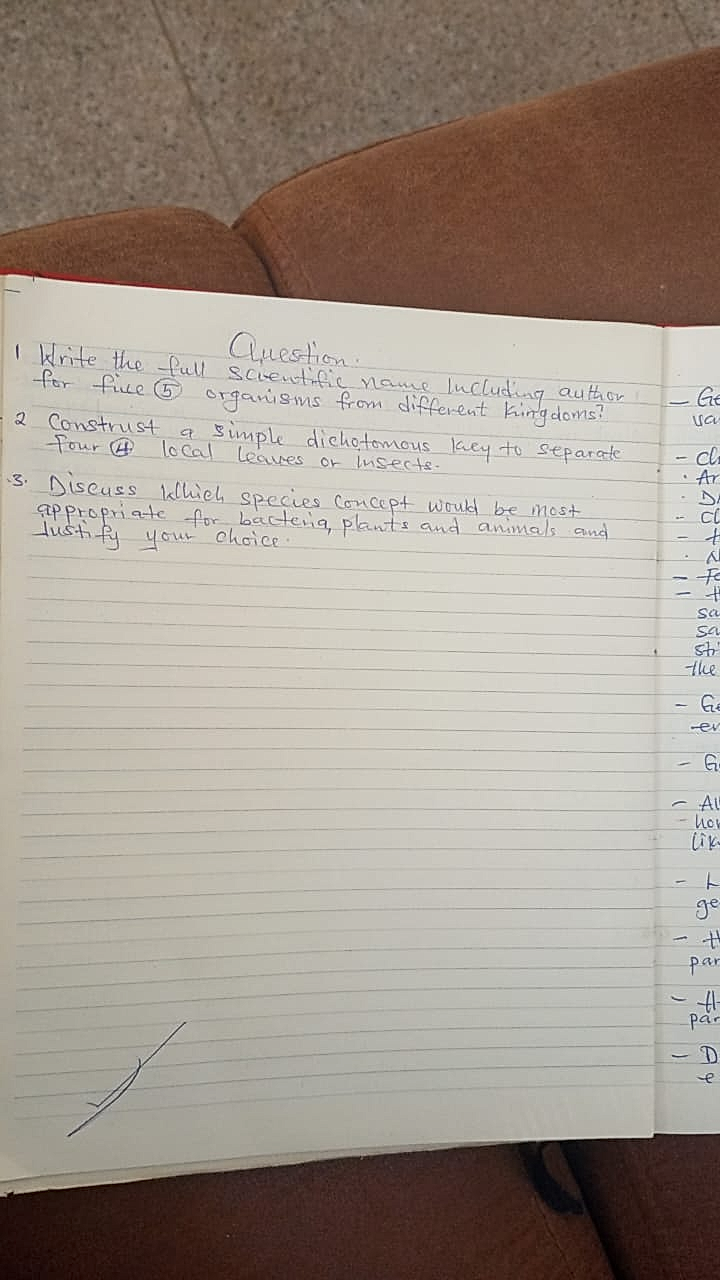 Question.
1 Write the full scientific name Including author
for five (5) organisms from different kingdoms?
2 Construst a simple dichotomous key to separate
four (4) local leaves or Insects.
3. Discuss Which species concept would be most
appropriate for bacteria, plants and animals and
Justify your choice.
the